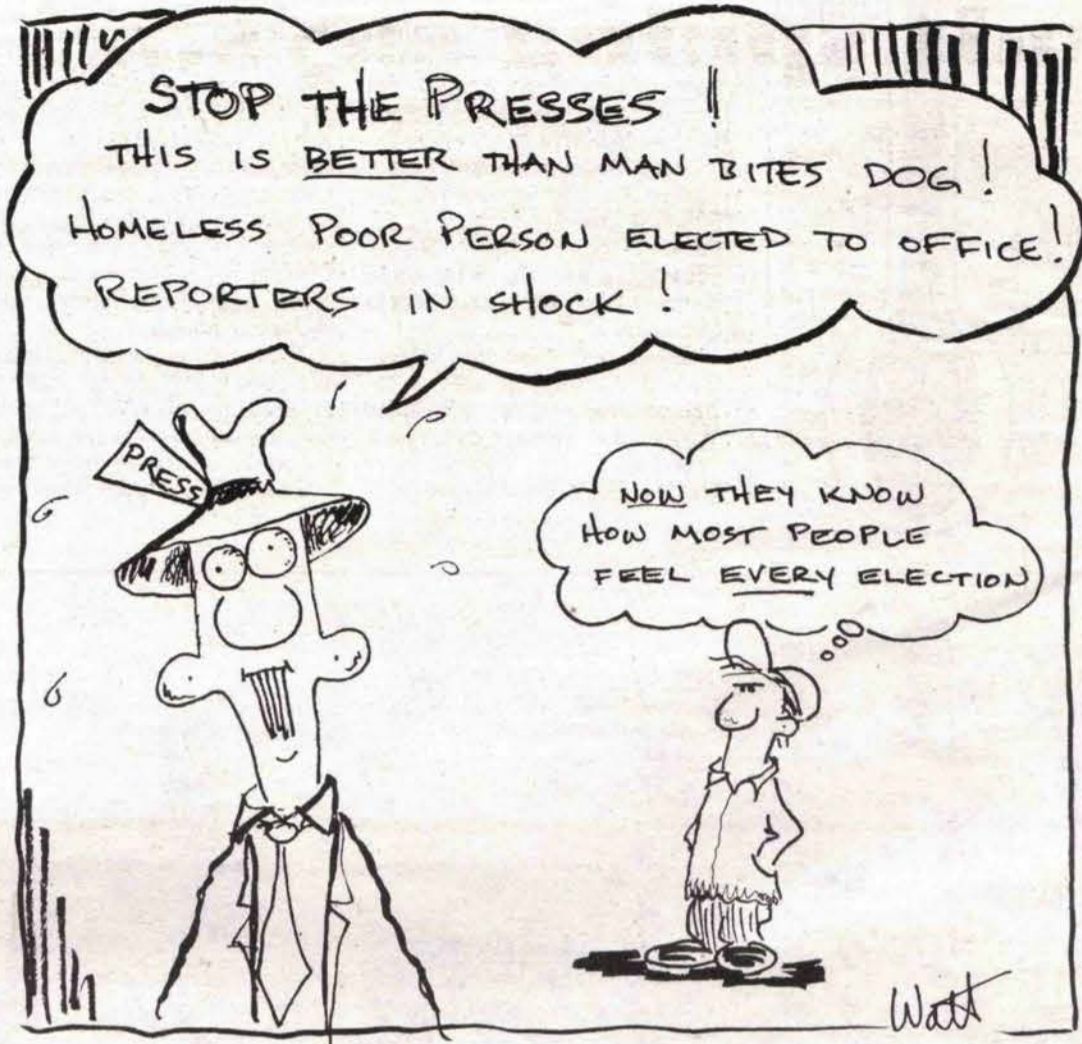 STOP THE PRESSES !
THIS IS BETTER THAN MAN BITES DOG !
HOMELESS POOR PERSON ELECTED TO OFFICE !
REPORTERS IN SHOCK !
PRESS
NOW THEY KNOW
HOW MOST PEOPLE
FEEL EVERY ELECTION
Watt